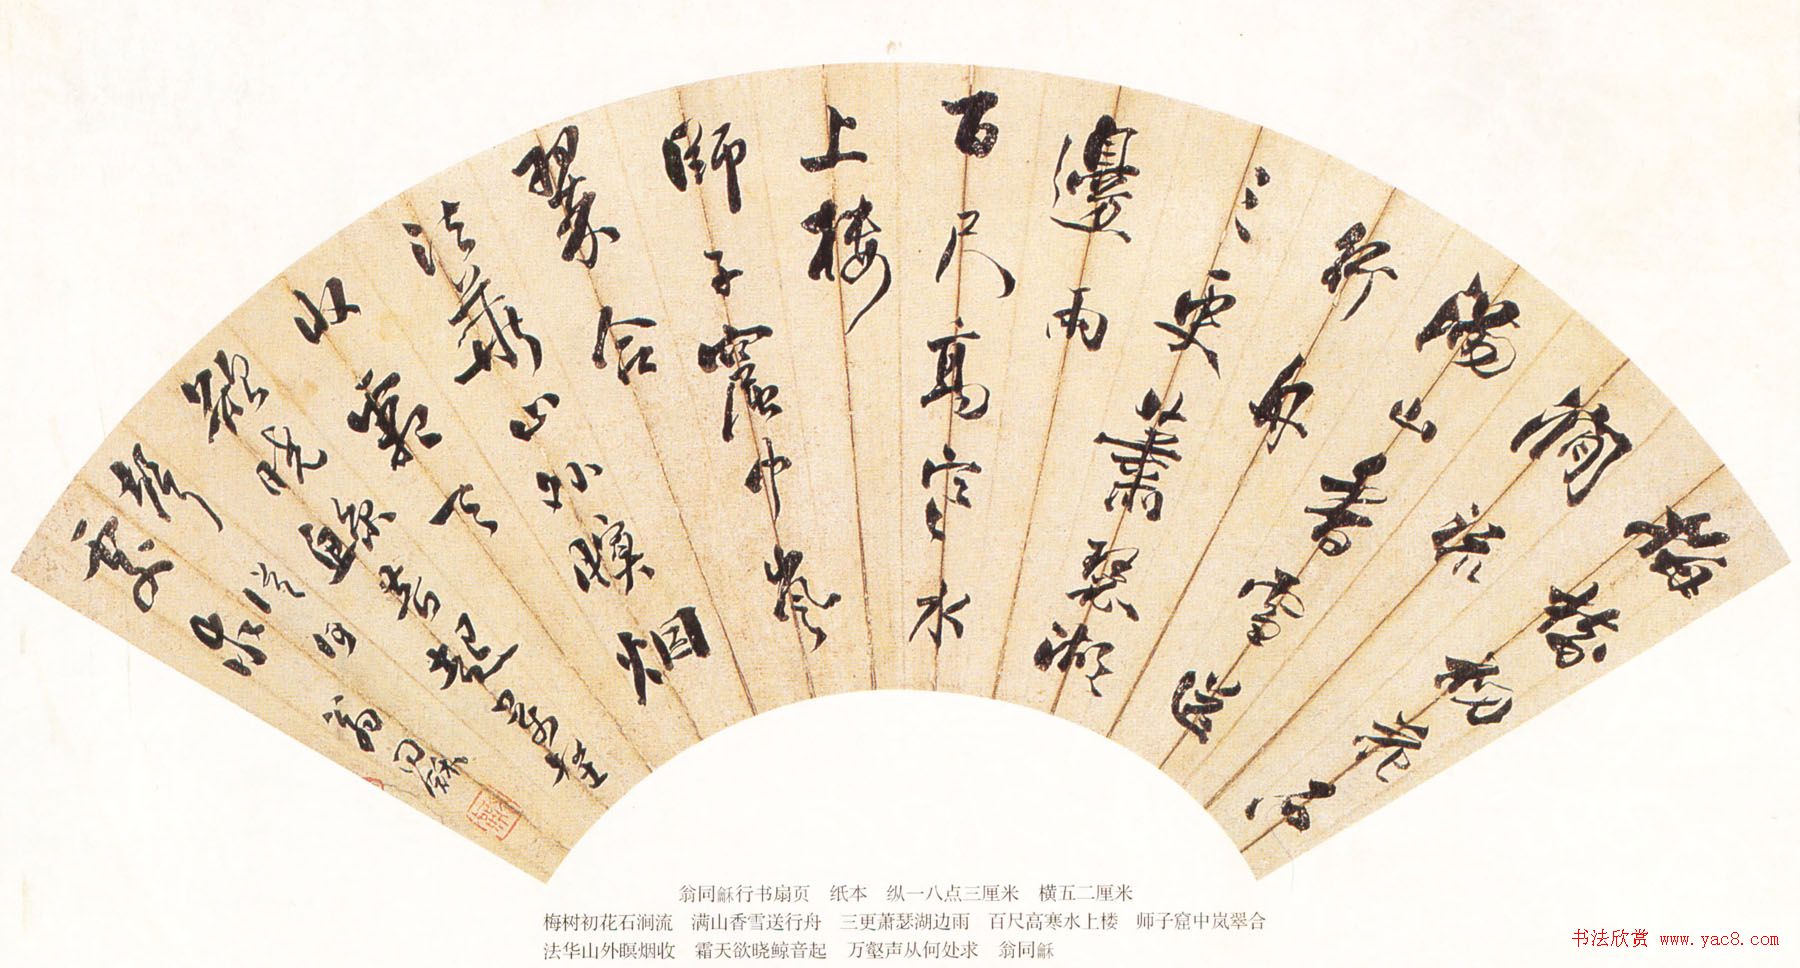 梅樹初花石
澗流
滿山香雪送
行舟
三更蕭瑟湖
邊雨
百尺高寒水
上樓
師子窟中嵐
翠合
法華山外暝烟
收霜天
欲曉鯨音起萬壑
聲從何
處求 翁同龢
翁同龢行书扇页 纸本 纵一八点三厘米 横五二厘米
梅树初花石涧流 满山香雪送行舟 三更萧瑟湖边雨 百尺高寒水上楼 师子窟中岚翠合
法华山外暝烟收 霜天欲晓鲸音起 万壑声从何处求 翁同龢
书法欣赏 www.yac8.com